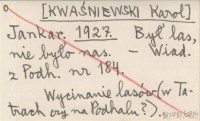 [KWAŚNIEWSKI Karol]
Jankar. 1927. Był las,
nie było nas. – Wiad.
z Podh. nr 184.
Wycinanie lasów (w Ta-
trach czy na Podhalu?).